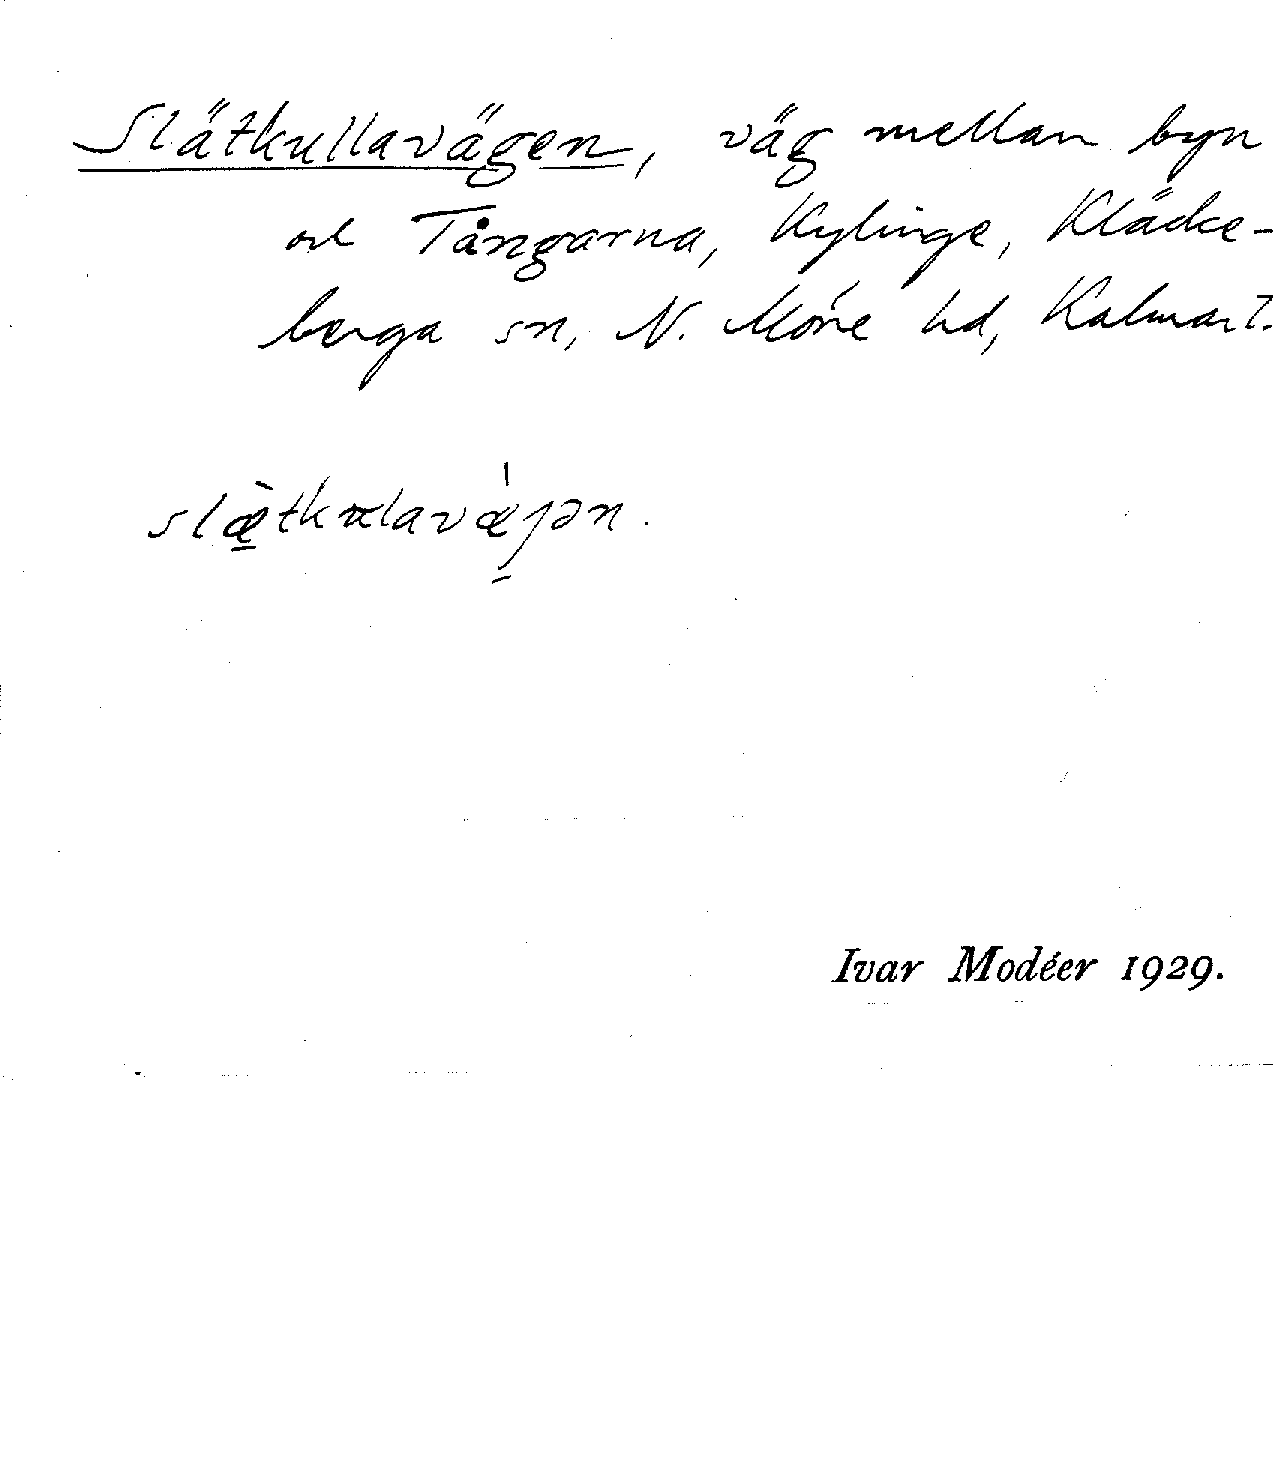 Slätkullavägen, väg mellan byn
och Tångarna, Kylinge, Kläcke-
berga sn, N. Möre hd, Kalmar l.
Ivar Modéer 1929.